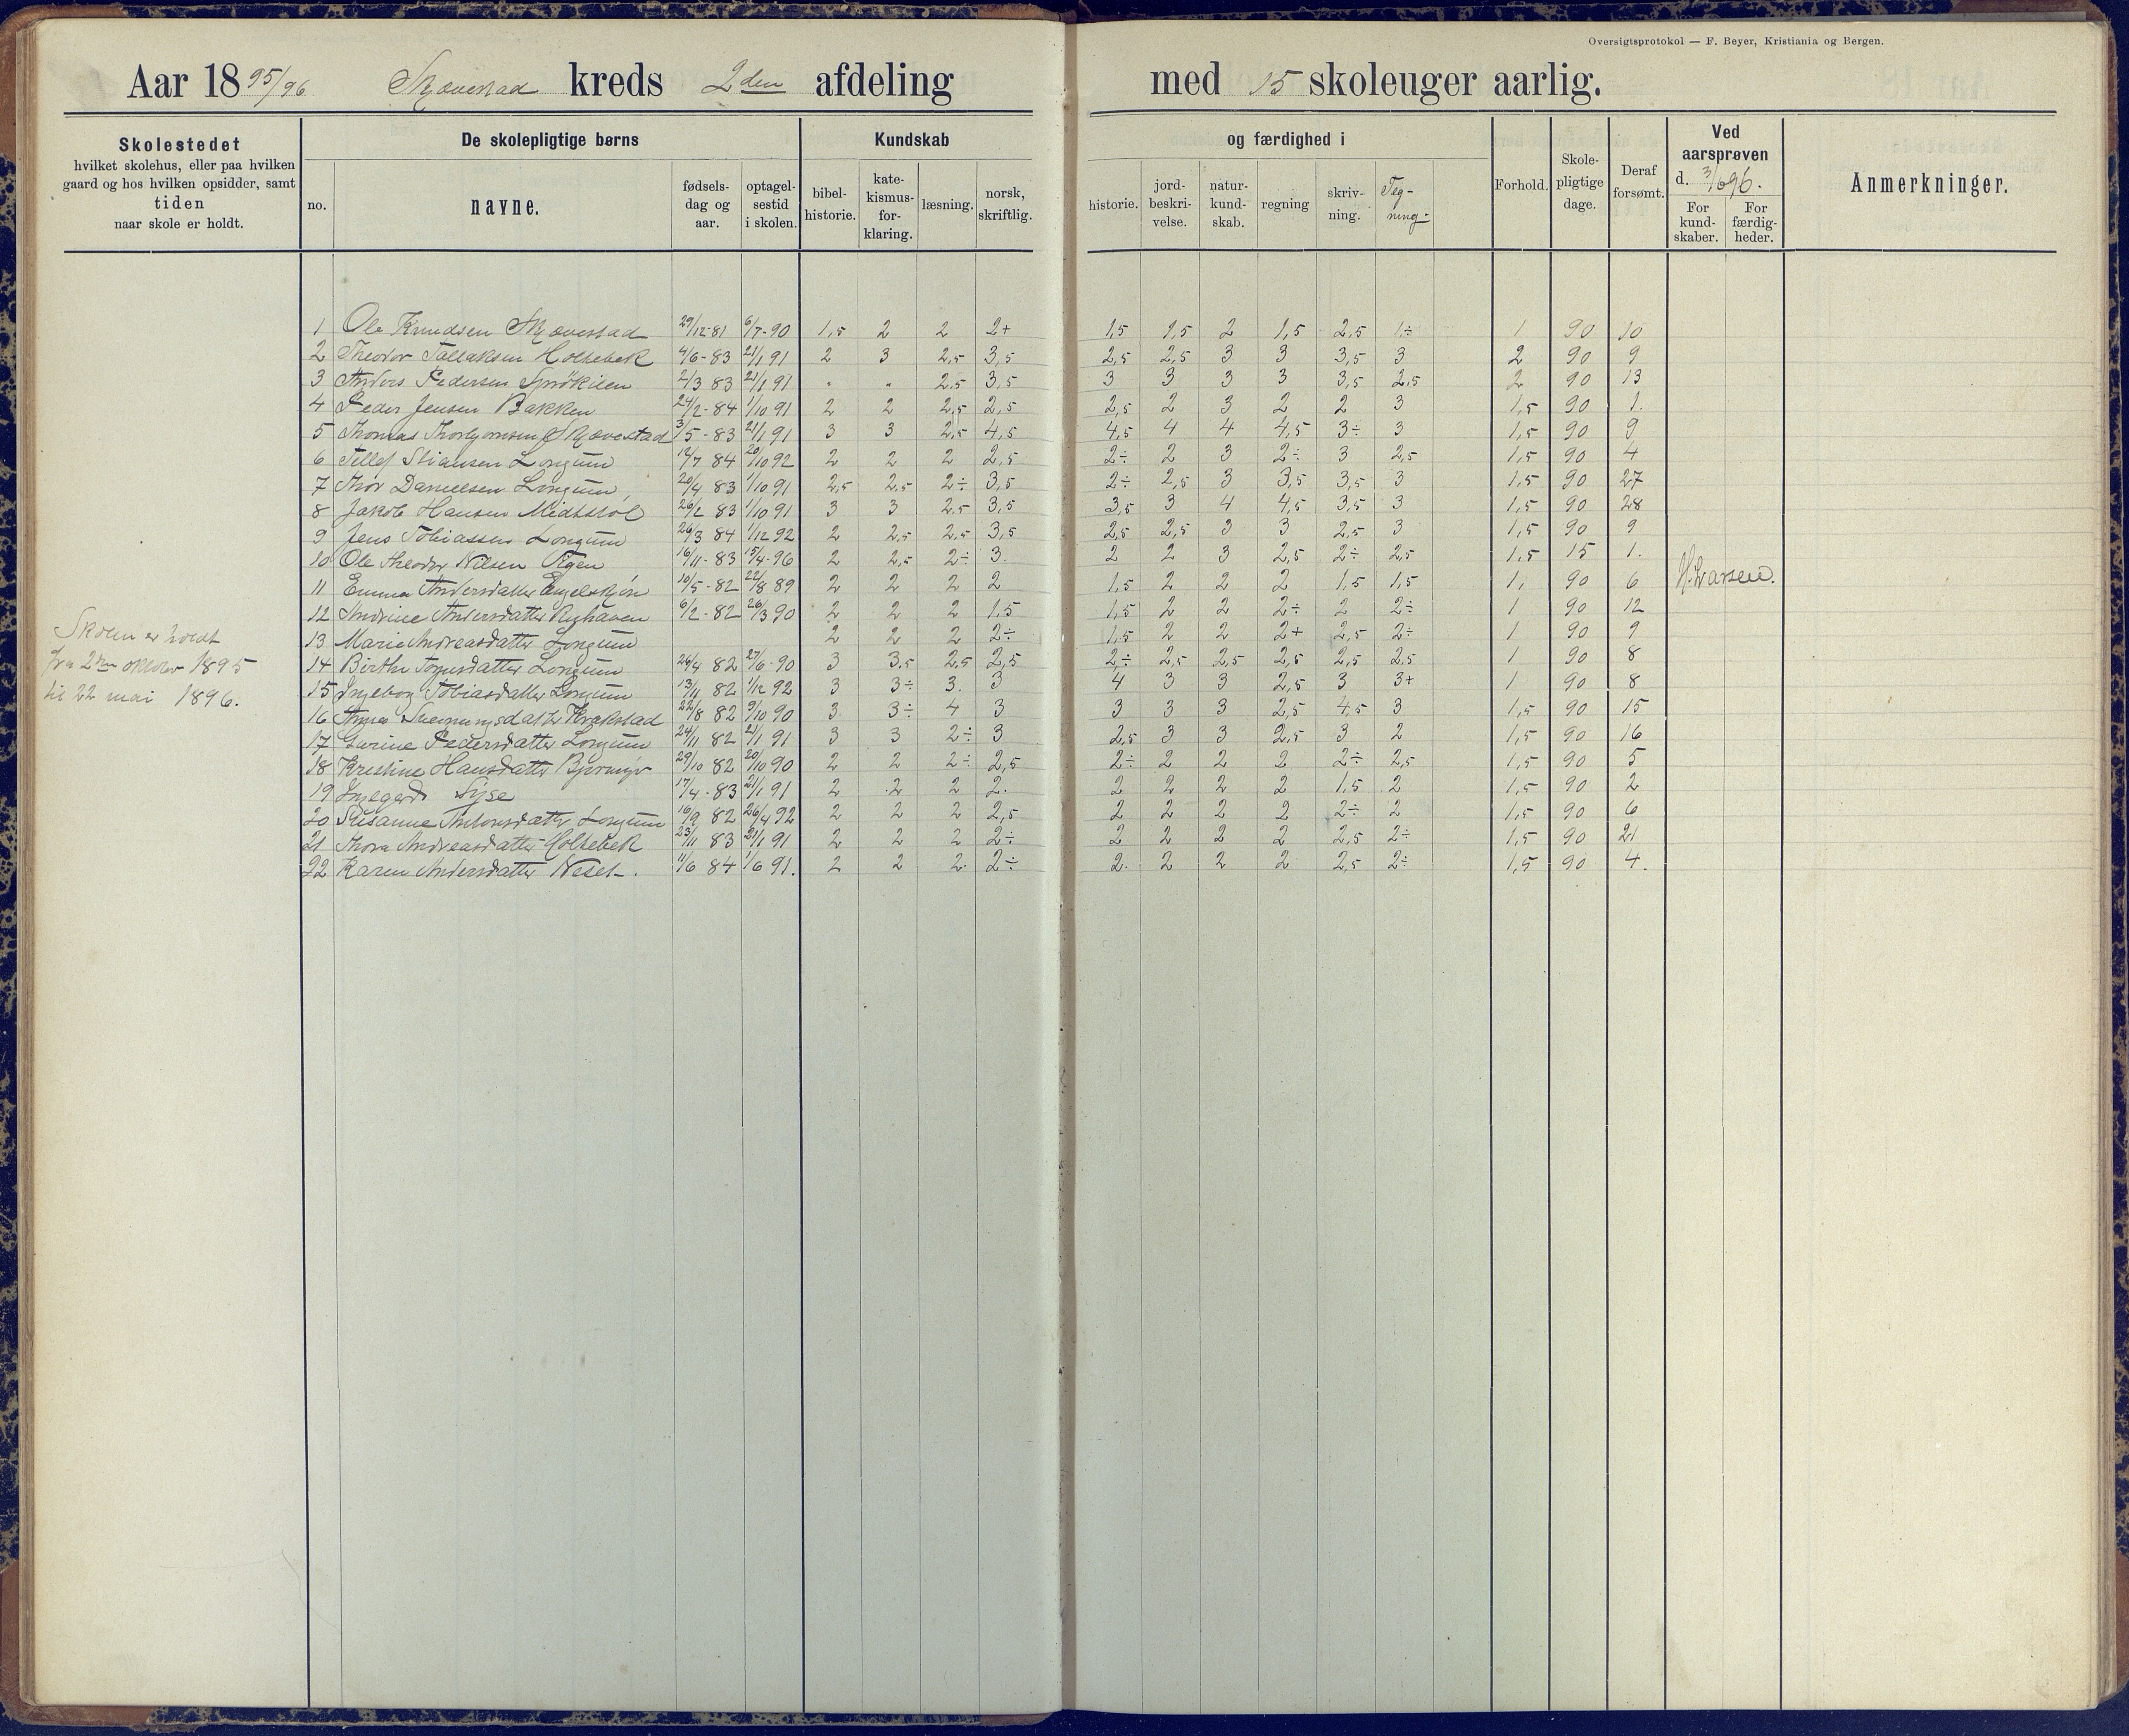 Oversigtsprotokol — F. Beyer, Kristiania og Bergen.
Aar 1895/96 Skjævestad kreds 2den afdeling med 15 skoleuger aarlig.
Skolestedet
hvilket skolehus, eller paa hvilken
gaard og hos hvilken opsidder, samt
tiden
naar skole er holdt.
De skolepligtige børns
no.
navne.
fødsels-
dag og
aar.
optagel-
sestid
i skolen.
Kundskab
bibel-
historie.
kate-
kismus-
for-
klaring.
læsning.
norsk,
skriftlig.
og færdighed i
historie.
jord-
beskri-
velse.
natur-
kund-
skab.
regning
skriv-
ning.
Teg-
ning-
Forhold.
Skole-
pligtige
dage.
Deraf
forsømt.
Ved
aarsprøven
d. 3/6 96.
For
kund-
skaber.
For
færdig-
heder.
Anmerkninger.
1 Ole Knudsen Skjævestad 29/12-81 6/7-90 1,5 2 2 2+ 1,5 1,5 2 1,5 2,5 1÷ 1 90 10
2 Theodor Tallaksen Holtebek 4/6-83 21/1 91 2 3 2,5 3,5 2,5 2,5 3 3 3,5 3 2 90 9
3 Anders Pedersen 2/3 83 21/1 91 " " 2,5 3,5 3 3 3 3 3,5 2,5 2 90 13
4 Peder Jensen Bakken 24/2-84 1/10 91 2 2 2,5 2,5 2,5 2 3 2 2 3 1,5 90 1.
5 Thomas Thorbjørnsen Skjævestad 3/5-83 21/1 91 3 3 2,5 4,5 4,5 4 4 4,5 3÷ 3 1,5 90 9
6 Tellef Stiansen Longum 12/7 84 20/10 92 2 2 2 2,5 2÷ 2 3 2÷ 3 2,5 1,5 90 4
7 Thor Danielsen Longum 20/4 83 1/10 91 2,5 2,5 2÷ 3,5 2÷ 2,5 3 3,5 3,5 3 1,5 90 27
8 Jakob Hansen Midtstøl 26/2 83 1/10 91 3 3 2,5 3,5 3,5 3 4 4,5 3,5 3 1,5 90 28
9 Jens Tobiassen Longum 26/3 84 1/12 92 2 2,5 2,5 3,5 2,5 2,5 3 3 2,5 3 1,5 90 9
10 Ole Theodor Nilsen Vigen 16/11-83 15/4-96 2 2,5 2÷ 3. 2 2 3 2,5 2÷ 2,5 1,5 15 1.
11 Emma Andersdatter Engelskjøn 10/5-82 22/8 89 2 2 2 2 1,5 2 2 2 1,5 1,5 1, 90 6 H. Larsen.
12 Andrine Andersdatter Ryghaven 6/2-82 26/3 90 2 2 2 1,5 1,5 2 2 2÷ 2 2÷ 1 90 12
13 Marie Andreasdatter Longum 2 2 2 2÷ 1,5 2 2 2+ 2,5 2÷ 1 90 9
14 Birthe Torjusdatter Longum 26/4 82 27/6-90 3 3,5 2,5 2,5 2÷ 2,5 2,5 2,5 2,5 2,5 1 90 8
15 Ingeborg Tobiasdatter Longum 13/11 82 1/12 92 3 3÷ 3. 3 4 3 3 2,5 3 3+ 1 90 8
16 Anna Sveinungsdatter Krokstad 22/8 82 9/10 90 3. 3÷ 4 3 3 3 3 2,5 4,5 3 1,5 90 15
17 Gurine Pedersdatter Longum 24/11 82 21/1 91 3 3 2÷ 3 2,5 3 3 2,5 3 2 1,5 90 16
18 Kristine Hansdatter Bjørmyr 29/10 82 20/10 90 2 2 2÷ 2,5 2÷ 2 2 2 2÷ 2,5 1,5 90 5
19 Ingegerd Syse 17/4-83 21/1 91 2 2 2 2. 2 2 2 2 1,5 2 1,5 90 2
20 Susanne Antonsdatter Longum 16/9 82 26/4 92 2 2 2 2,5 2 2 2 2 2÷ 2 1,5 90 6
21 Thora Andreasdatter Holtebek 23/11 83 21/1 91 2 2 2 2÷ 2 2 2 2 2,5 2÷ 1,5 90 21
22 Karen Andersdatter Neset. 11/6 84 1/6 91. 2 2 2. 2÷ 2. 2 2 2 2,5 2÷ 1,5 90 4.
Skolen er holdt
fra 2den oktober 1895
til 22 mai 1896.